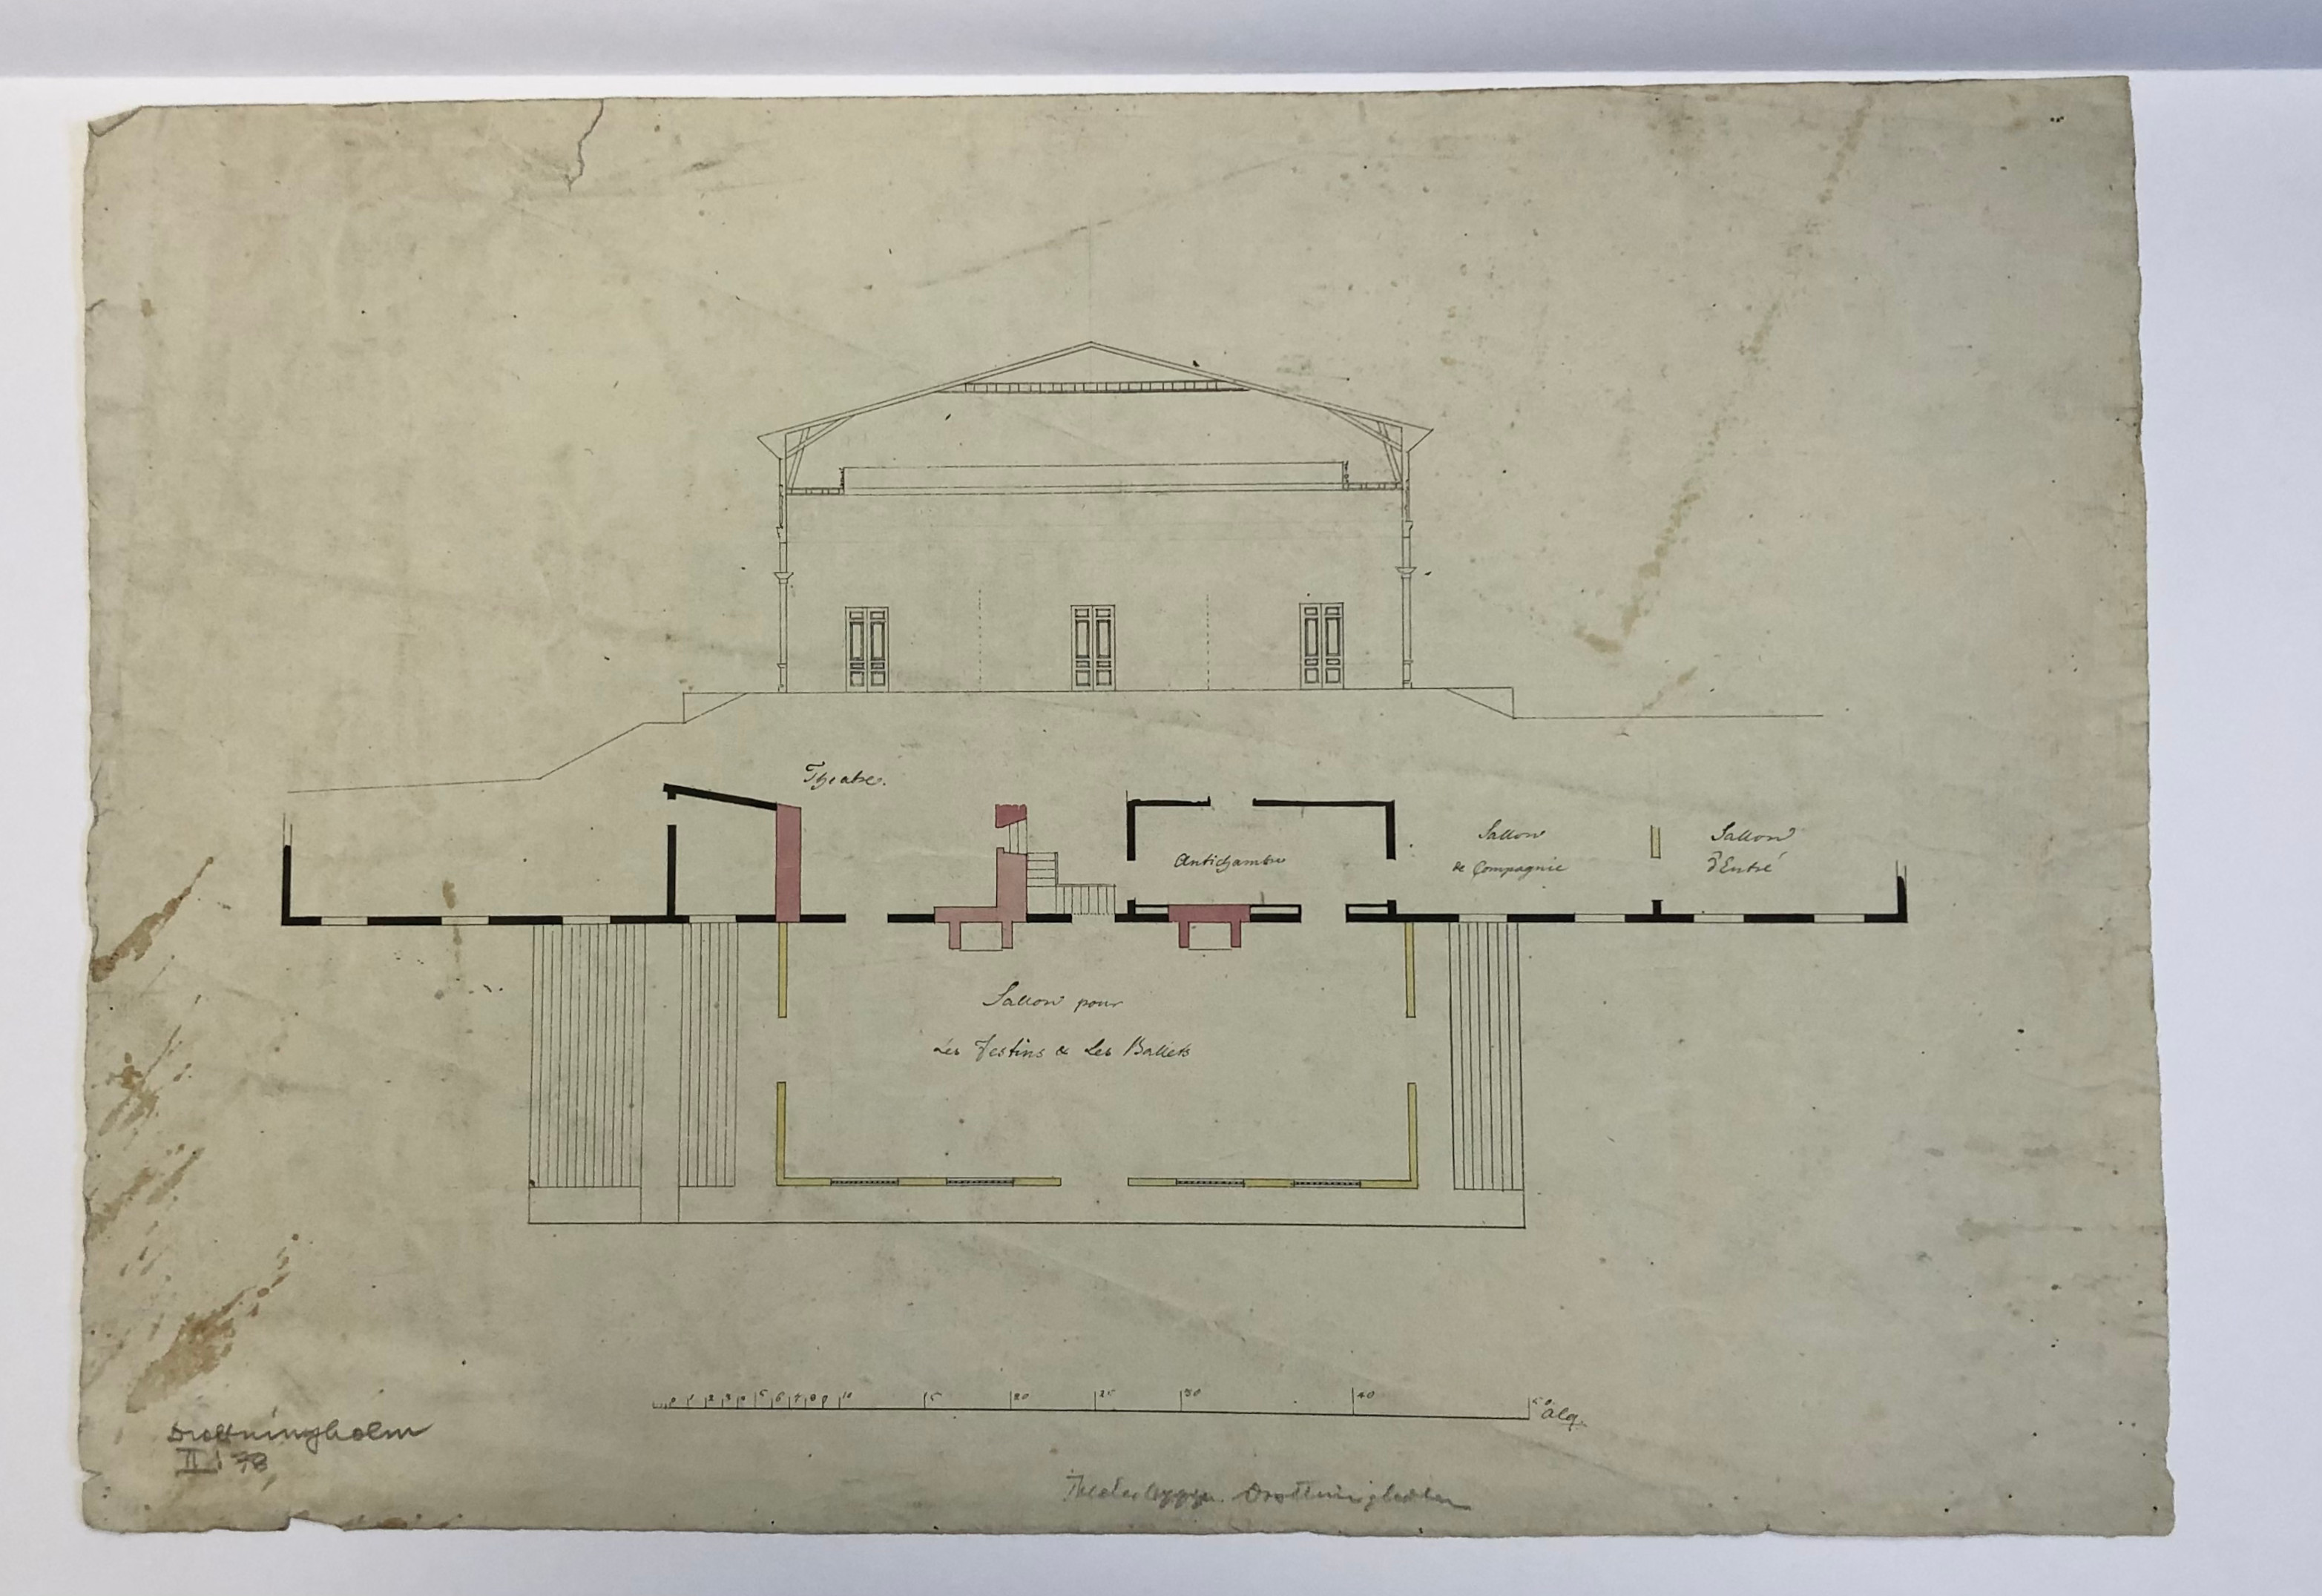 Theatre.
Antichambre
Sallon
de Compagnie
Sallon
d'Entré
Sallon pour
Les Festins & Les Ballets
0 1 2 3 4 5 6 7 8 9 10 15 20 25 30 40 50 alq.
Drottningholm
II: 78
Drottningholm